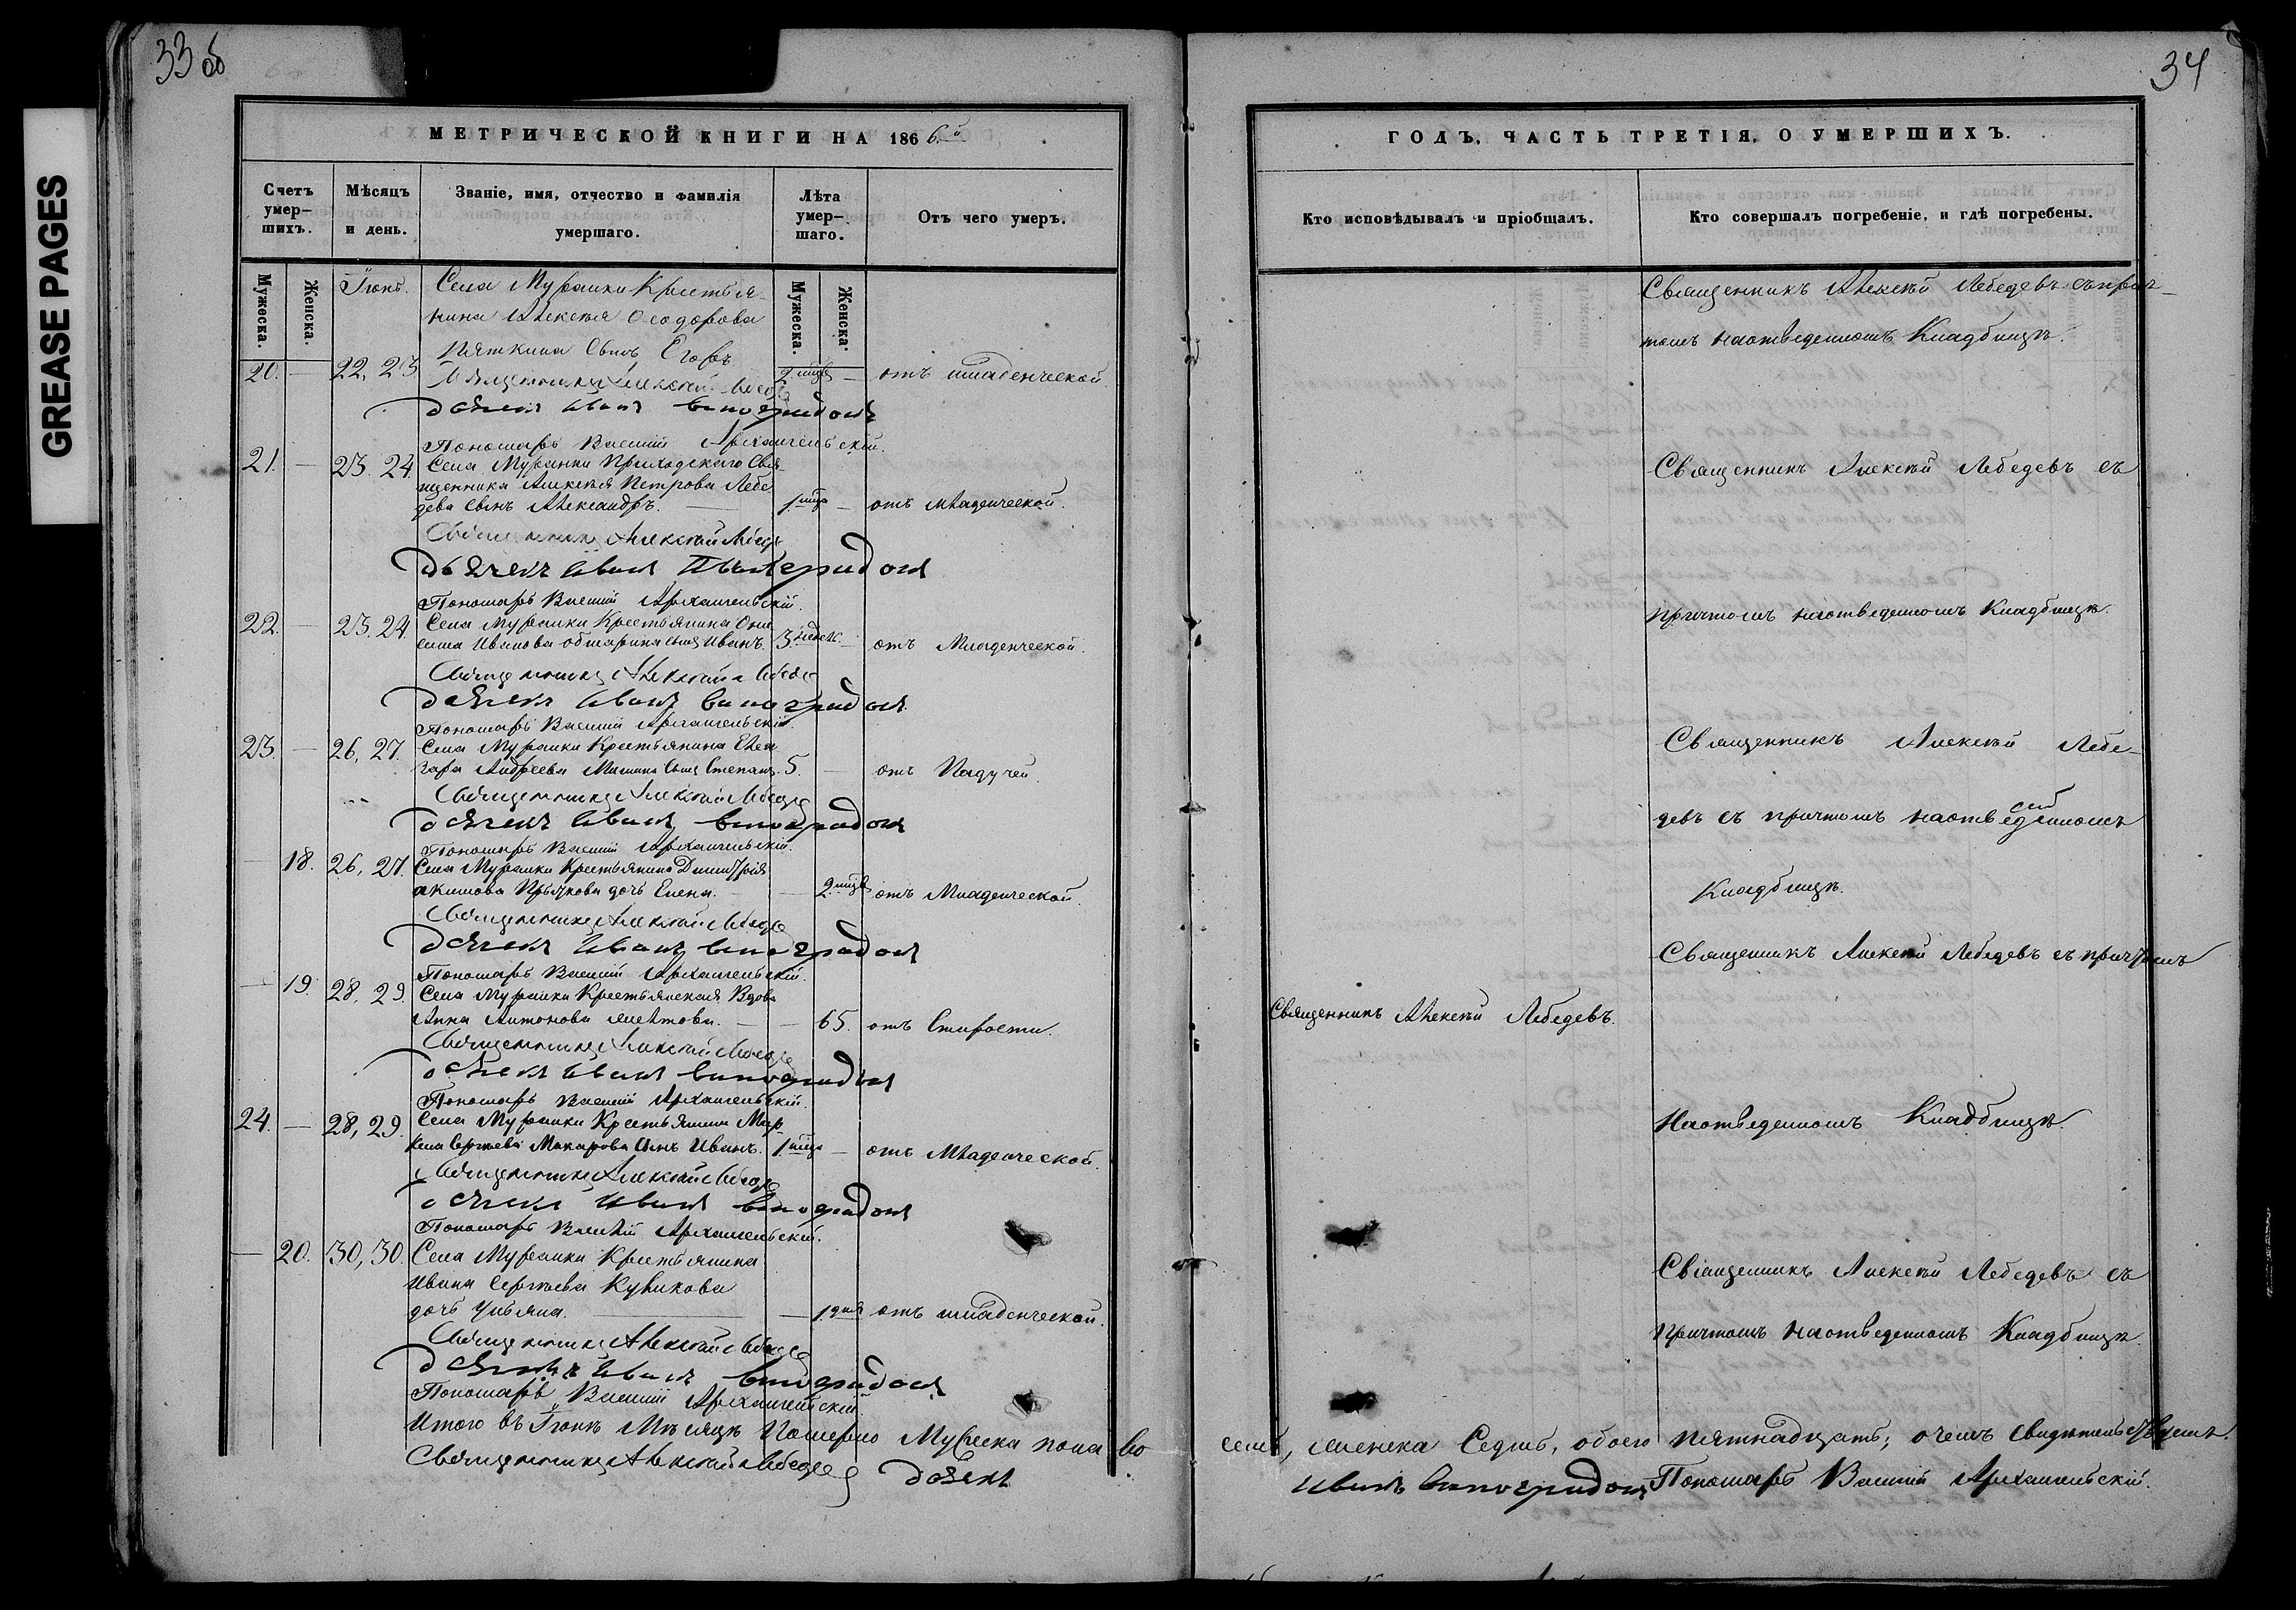 GREASE PAGES
33 об
34
МЕТРИЧЕСКОЙ КНИГИ НА 1866й
ГОДЪ. ЧАСТЬ ТРЕТІЯ, О УМЕРШИХЪ.
Счетъ умер-
шихъ.
Мѣсяцъ
и день.
Званіе, имя, отчество и фамилія
умершаго.
Лѣта
умер-
шаго.
Отъ чего умеръ.
Кто исповѣдывалъ и пріобщалъ.
Кто совершалъ погребеніе, и гдѣ погребены.
Мужеска.
Женска.
Мужеска.
Женска.
Іюнь.
Села Муранки Крестья-
нина Алексѣя Ѳеодорова
Пяткина Сынъ Егоръ
20. — 22, 23 — отъ младенческой.
Священникъ Алексѣй Лебедев
дьячекъ Иванъ виноградовъ
Пономарь Василій Архангельскій.
Священникъ Алексѣй Лебедевъ съ прич-
томъ на отведенномъ Кладбищѣ.
21. — 23. 24 Села Муранки Приходскаго Свя-
щенника Алексѣя Петрова Лебе
дева Сынъ Александръ. — отъ младенческой.
Священникъ Алексѣй Лебедев
дьячекъ Иванъ виноградовъ
Пономарь Василій Архангельскій.
Священникъ Алексѣй Лебедевъ съ
22. — 23. 24. Села Муранки Крестьянина Они
сима Иванова сынъ Иванъ. 3 недѣл. — отъ Младенческой.
Священникъ Алексѣй Лебедев
дьячекъ Иванъ виноградовъ
Пономарь Василій Архангельскій.
причтомъ на отведенномъ Кладбищѣ.
23. — 26, 27. Села Муранки Крестьянина Елеа
зара Андреева Сынъ Степанъ. 5. — отъ Падучей.
Священникъ Алексѣй Лебедев
дьячекъ Иванъ виноградовъ
Пономарь Василій Архангельскій.
Священникъ Алексѣй Лебе-
девъ съ причтомъ на отведенномъ
Кладбищѣ.
— 18. 26, 27. Села Муранки Крестьянина Димитрія
Акимова дочь Елена. — отъ Младенческой.
Священникъ Алексѣй Лебедев
дьячекъ Иванъ виноградовъ
Пономарь Василій Архангельскій.
Священникъ Алексѣй Лебедевъ съ причтомъ
— 19. 28, 29. Села Муранки Крестьянская Вдова
Анна Антонова — 65. отъ Старости.
Священникъ Алексѣй Лебедев
дьячекъ Иванъ виноградовъ
Пономарь Василій Архангельскій.
Священникъ Алексѣй Лебедевъ.
24. — 28, 29. Села Муранки Крестьянина Мар
кела Сергѣева Макарова Сынъ Иванъ. — отъ Младенческой.
Священникъ Алексѣй Лебедев
дьячекъ Иванъ виноградовъ
Пономарь Василій Архангельскій.
На отведенномъ Кладбищѣ.
— 20. 30, 30. Села Муранки Крестьянина
Ивана Сергѣева Куликова
дочь Ульяна. — 1 дня отъ младенческой.
Священникъ Алексѣй Лебедев
дьячекъ Иванъ виноградовъ
Пономарь Василій Архангельскій.
Священникъ Алексѣй Лебедевъ съ
причтомъ на отведенномъ Кладбищѣ.
Итого въ Іюнѣ Мѣсяцѣ Померло Мужеска пола во семь, женска Седмь, обоего пятнадцать; о чемъ свидѣтельствуемъ.
Священникъ Алексѣй Лебедев дьячекъ Иванъ виноградовъ Пономарь Василій Архангельскій.